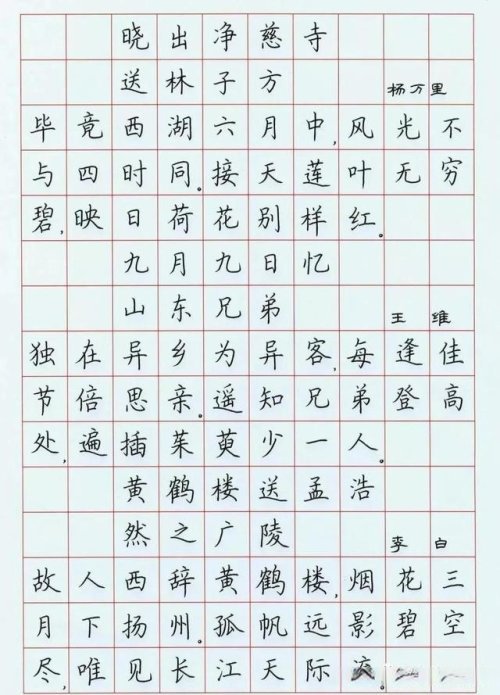 晓出净慈寺
送林子方 杨万里
毕竟西湖六月中,风光不
与四时同。接天莲叶无穷
碧,映日荷花别样红。
九月九日忆
山东兄弟 王维
独在异乡为异客,每逢佳
节倍思亲。遥知兄弟登高
处,遍插茱萸少一人。
黄鹤楼送孟浩
然之广陵 李白
故人西辞黄鹤楼,烟花三
月下扬州。孤帆远影碧空
尽,唯见长江天际流